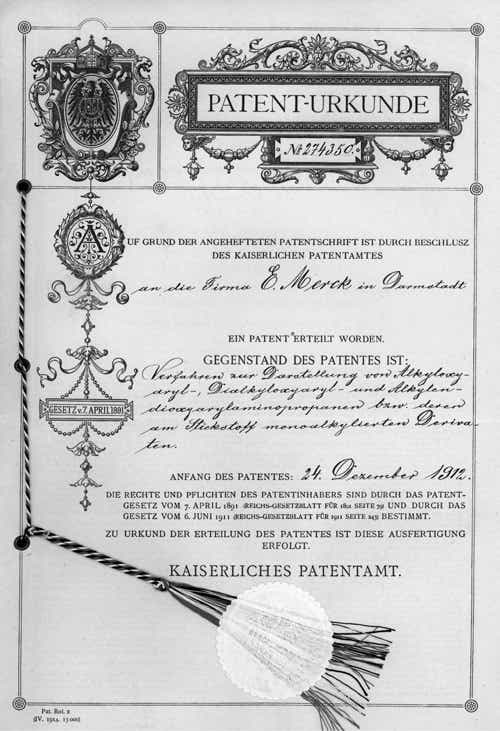 PATENT-URKUNDE
№ 274350.
AUF GRUND DER ANGEHEFTETEN PATENTSCHRIFT IST DURCH BESCHLUSZ
DES KAISERLICHEN PATENTAMTES
an die Firma E. Merck in Darmstadt
EIN PATENT ERTEILT WORDEN.
GEGENSTAND DES PATENTES IST:
Verfahren zur Darstellung von Alkyloxy-
aryl-, Dialkyloxyaryl- und Alkylen-
dioxyarylaminopropanen bzw. deren
am Stickstoff monoalkylierten Deriva-
ten.
GESETZ v. 7. APRIL 1891
ANFANG DES PATENTES: 24. Dezember 1912.
DIE RECHTE UND PFLICHTEN DES PATENTINHABERS SIND DURCH DAS PATENT-
GESETZ VOM 7. APRIL 1891 (REICHS-GESETZBLATT FÜR 1891 SEITE 79) UND DURCH DAS
GESETZ VOM 6. JUNI 1911 (REICHS-GESETZBLATT FÜR 1911 SEITE 243) BESTIMMT.
ZU URKUND DER ERTEILUNG DES PATENTES IST DIESE AUSFERTIGUNG
ERFOLGT.
KAISERLICHES PATENTAMT.
Pat. Rol. 2
(IV. 1914. 15 000)